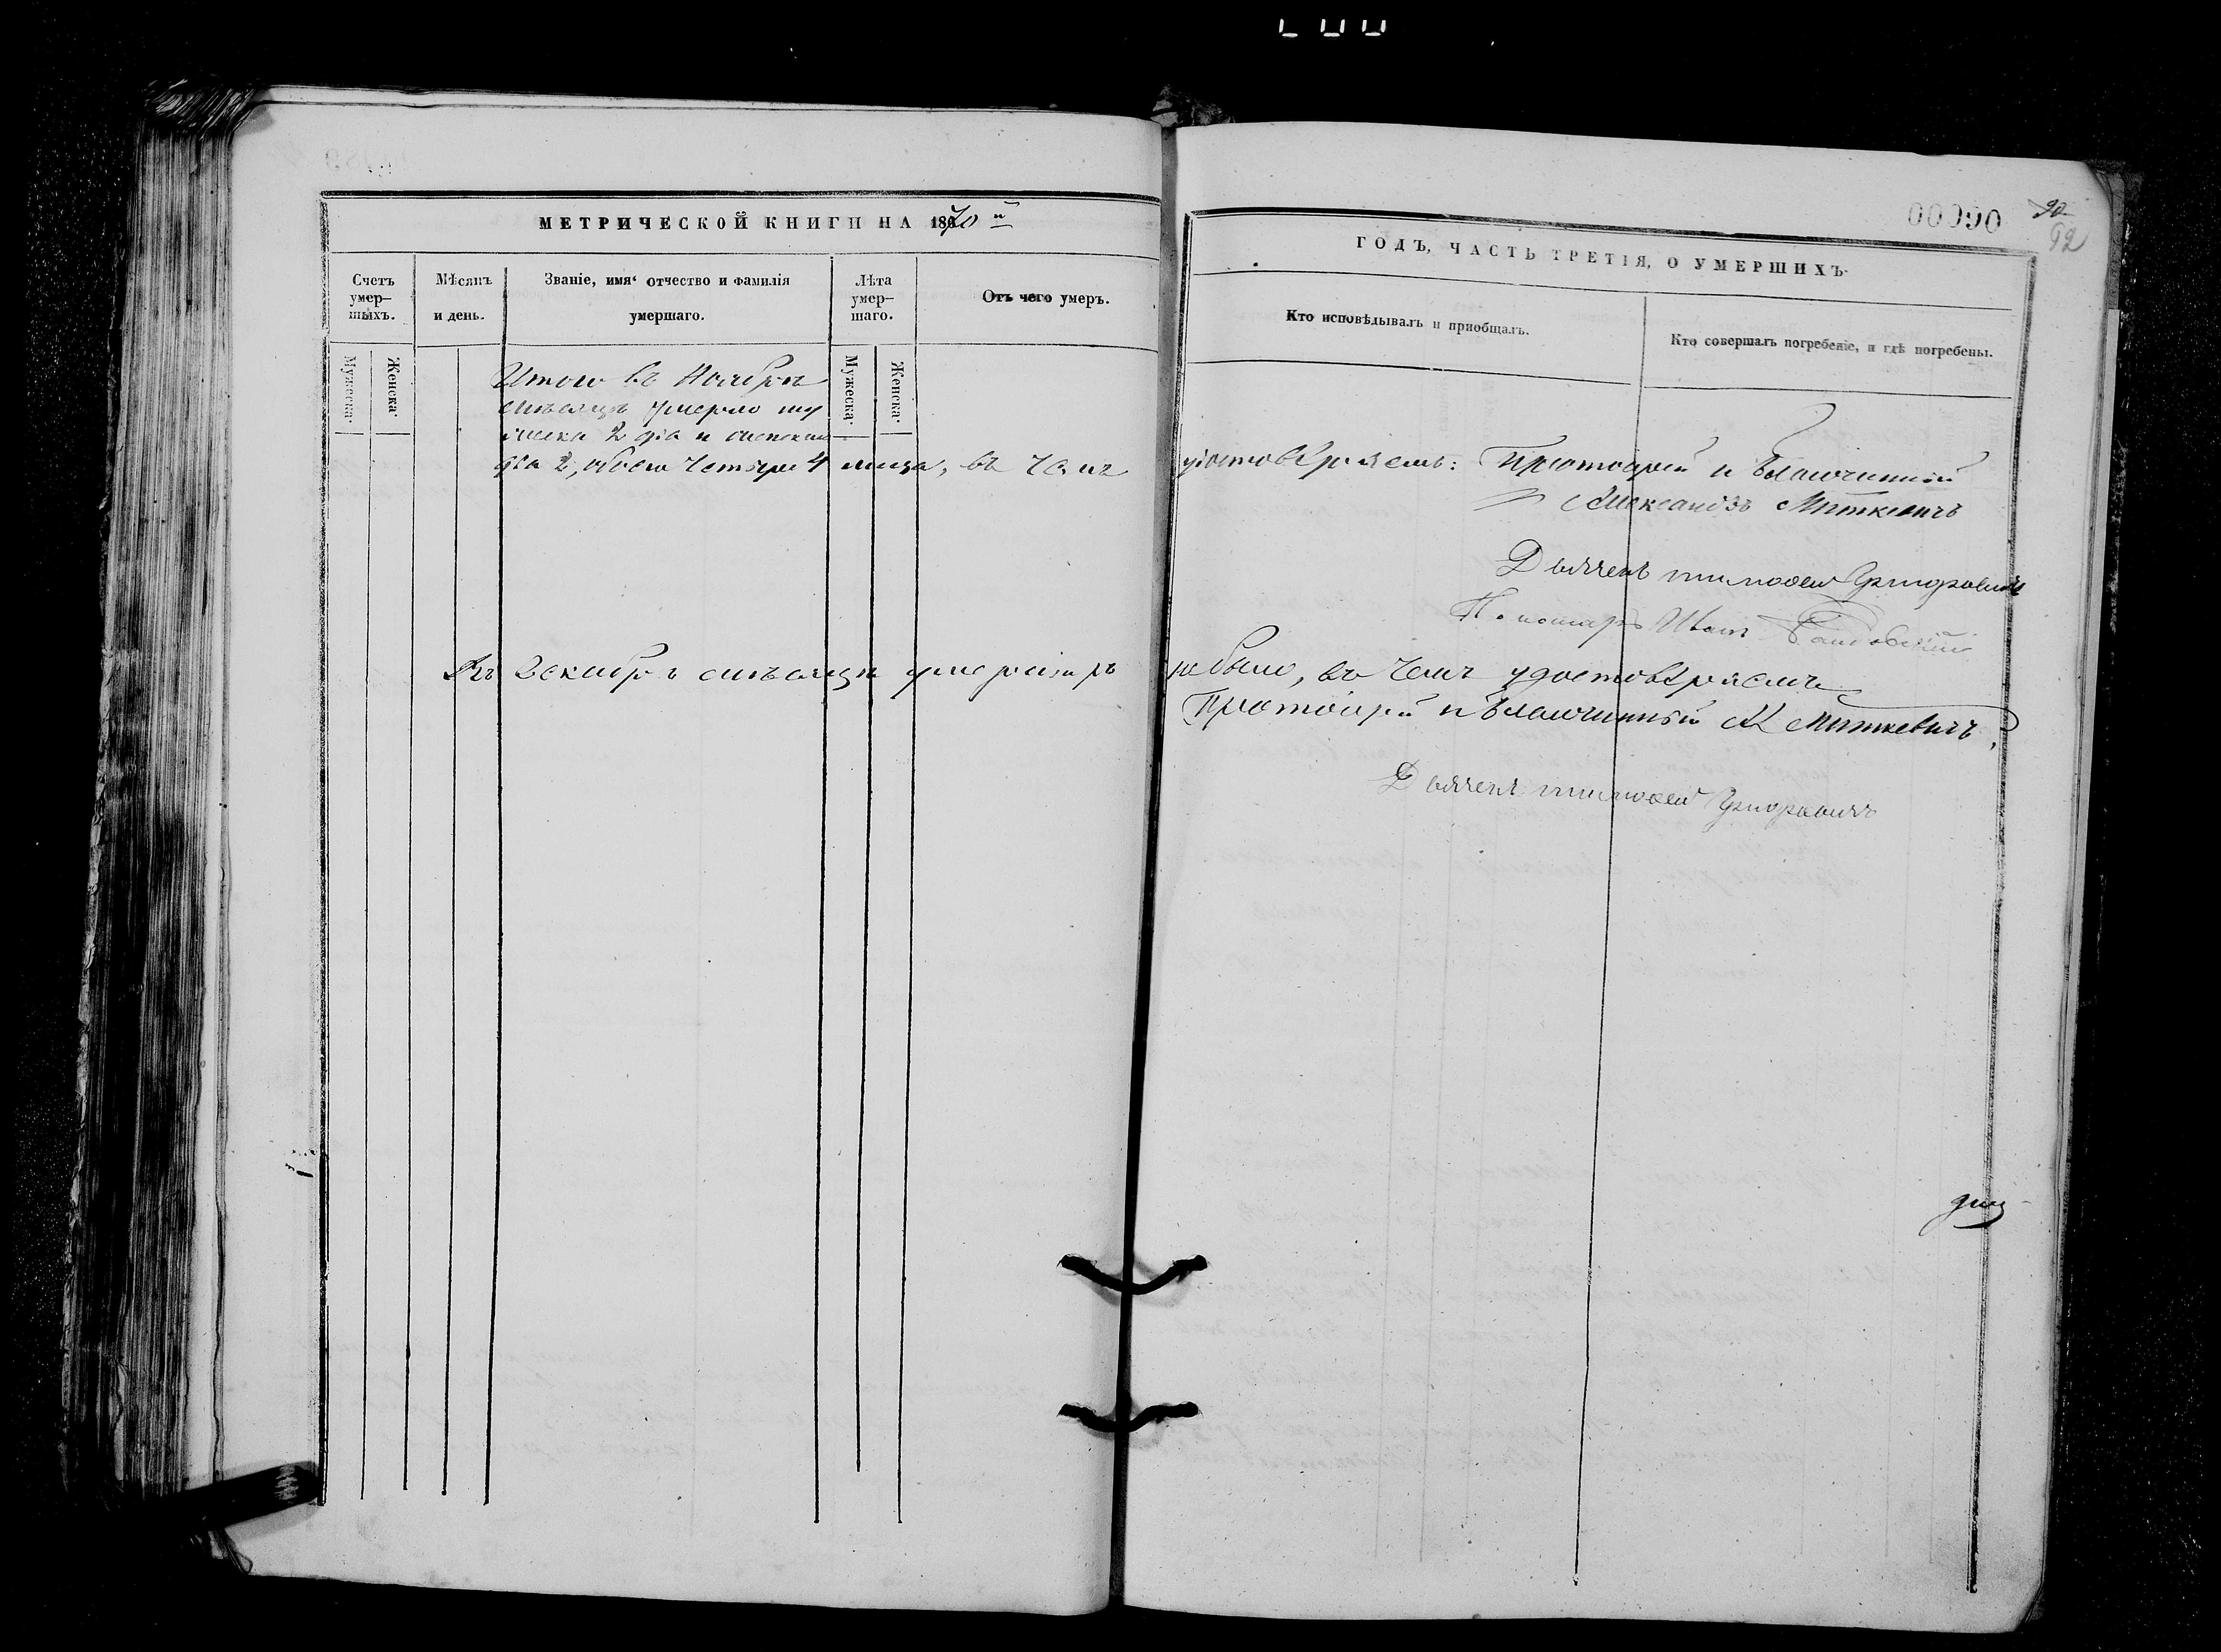 МЕТРИЧЕСКОЙ КНИГИ НА 1870й
Счетъ умер-шыхъ.
Мѣсяцъ и день.
Званіе, имя отчество и фамилія умершаго.
Лѣта умер-шаго.
Отъ чего умеръ.
Мужеска.
Женска.
Мужеска.
Женска.
Итого въ Ноябрѣ
мѣсяцѣ умерло му
жеска 2 два и женска
два 2, обоего четыре 4 лица, въ чемъ
Въ Декабрѣ мѣсяцѣ умершихъ
00090
90
92
ГОДЪ, ЧАСТЬ ТРЕТІЯ, О УМЕРШИХЪ.
Кто исповѣдывалъ и пріобщалъ.
Кто совершалъ погребеніе, и гдѣ погребены.
удостовѣряемъ: Протоіерей и Благочинный
Александръ Миткевичъ
Дьячекъ Тимофей Григоровичъ
Пономарь Иванъ
не было, въ чемъ удостовѣряемъ
Протоіерей и Благочинный А Миткевичъ,
Дьячекъ Тимофей Григоровичъ